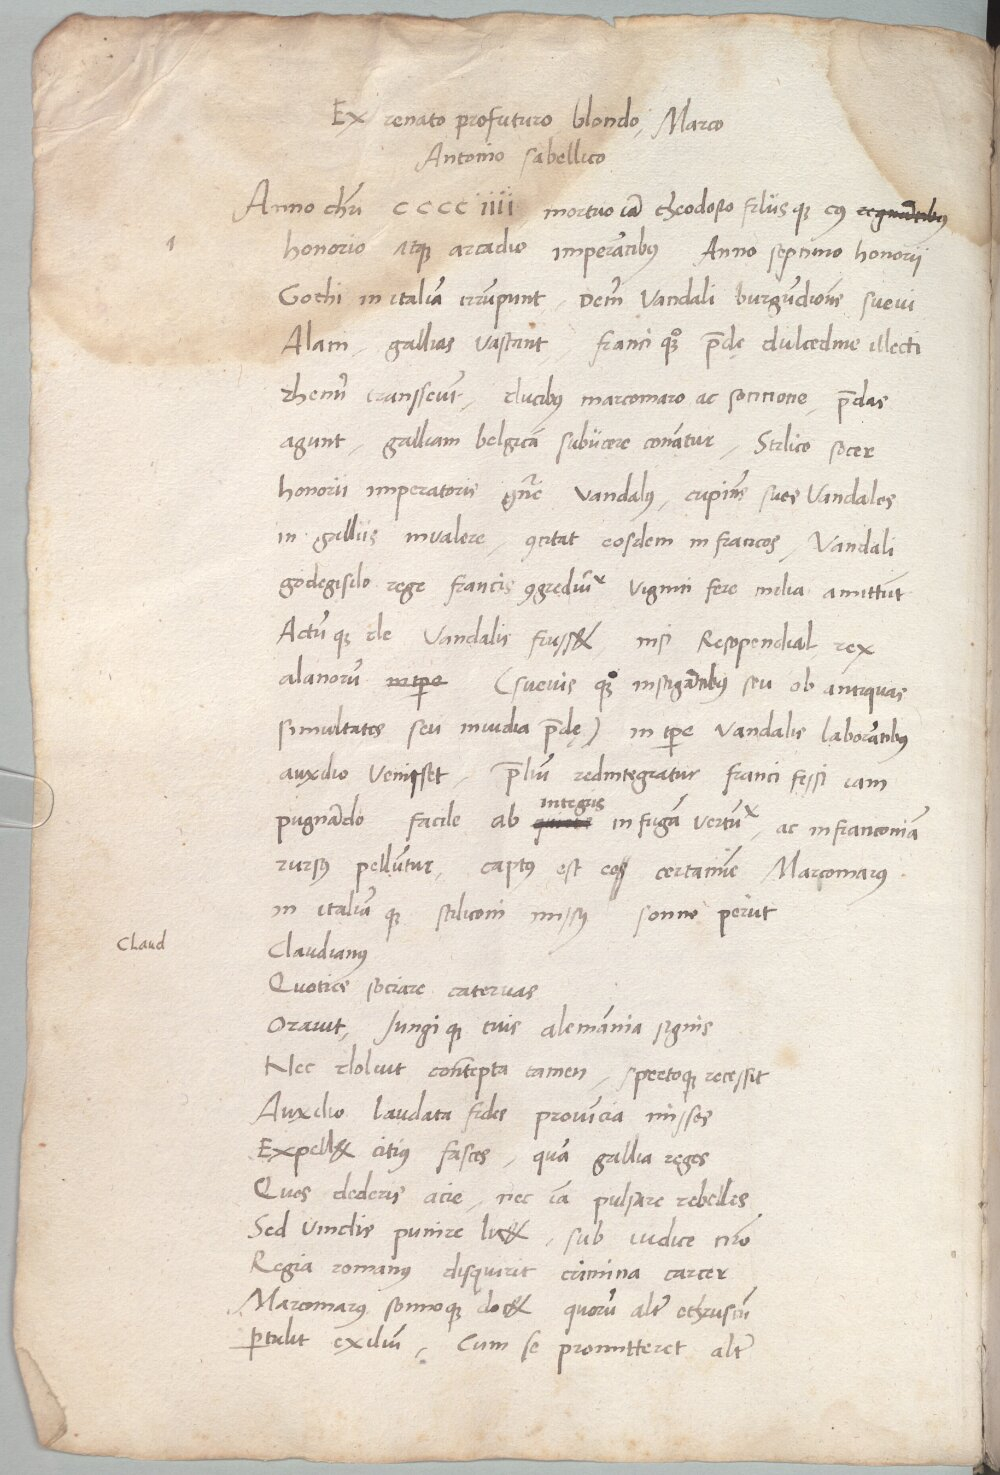 Ex renato profuturo blondo, Marco
Antonio sabellico
Anno chri CCCC iiii mortuo iā theodosio filiis que eius regnātibus
1
honorio Atque arcadio imperātibus Anno septimo honorii
Gothi in italiā irrūpunt, Deīn Vandali burgūdiones suevi
Alani, gallias vastant, franci quoque p̄dę dulcedine illecti
rhenū transseūt, ducibus marcomaro ac sonnone, p̄das
agunt, galliam belgicā subiicere conātur, Stilico socer
honorii imperatoris gñe Vandalus, cupiens suos Vandalos
in galliis invalere, ꝯcitat eosdem in francos, Vandali
godegisilo rege francis ꝯgrediūtur Viginti fere milia amittūt
Actū que de Vandalis fuiss&, nisi Resopendial rex
alanorū intpe (suevis quoque instigātibus seu ob antiquas
simultates seu invidia p̄dę) in tpe Vandalis laborātibus
auxilio Venisset, p̄liū redintegratur franci fessi iam
integris
pugnādo facile ab in fugā vertūtur, ac in franconiā
rursus pellūtur, captus est eo certamine Marcomarus
in italiā que stiliconi missus sonno periit
Claud
Claudianus
Quoties sociare catervas
Oravit, Jungi que tuis alemānia signis
Nec doluit contēpta tamen, spretoque recessit
Auxilio laudata fides provīcia missos
Expell& citius fasces, quā gallia reges
Quos dederis acie, nec iā pulsare rebelles
Sed Vinclis punire lic&, sub iudice nr̄o
Regia romanus disquirit crimina carcer
Marcomarus sonnoque doc& quorū alter ethruscū
Pertulit exiliū, Cum se promitteret alter